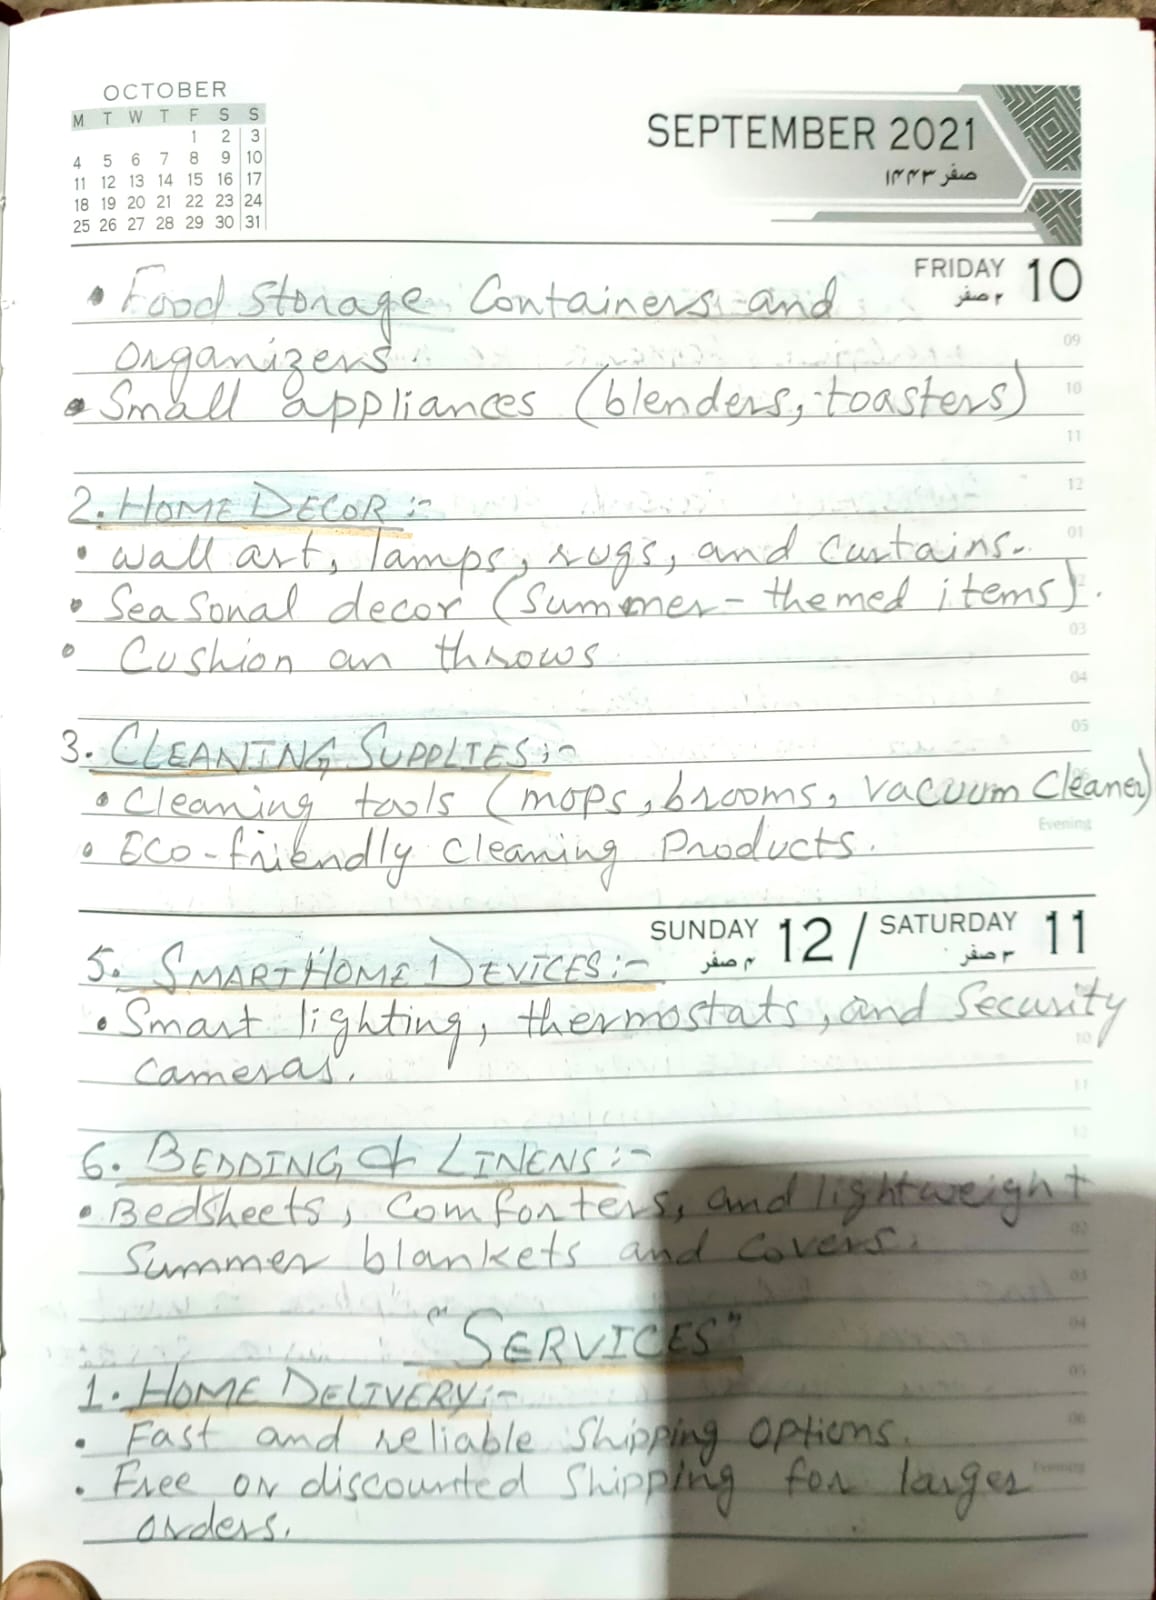 OCTOBER
M T W T F S S
1 2 3
4 5 6 7 8 9 10
11 12 13 14 15 16 17
18 19 20 21 22 23 24
25 26 27 28 29 30 31
SEPTEMBER 2021
صفر ۱۴۴۳
FRIDAY 10
۲ صفر
• Food Storage Containers and
09
organizers.
• Small appliances (blenders, toasters)
10
11
12
2. HOME DECOR :-
• Wall art, lamps, rugs, and curtains.
01
• Seasonal decor (Summer-themed items).
02
03
• Cushion an throws
04
05
3. CLEANING SUPPLIES :-
• Cleaning tools (mops, brooms, vacuum Cleaner)
Evening
• Eco-friendly Cleaning Products.
SUNDAY 12 / SATURDAY 11
۴ صفر ۳ صفر
5. SMART HOME DEVICES :-
• Smart lighting, thermostats, and Security
10
cameras.
11
12
6. BEDDING & LINENS :-
• Bedsheets, Comforters, and lightweight
02
Summer blankets and Covers.
03
"SERVICES"
04
1. HOME DELIVERY :-
05
• Fast and reliable Shipping options.
06
• Free or discounted Shipping for larger
Evening
orders.